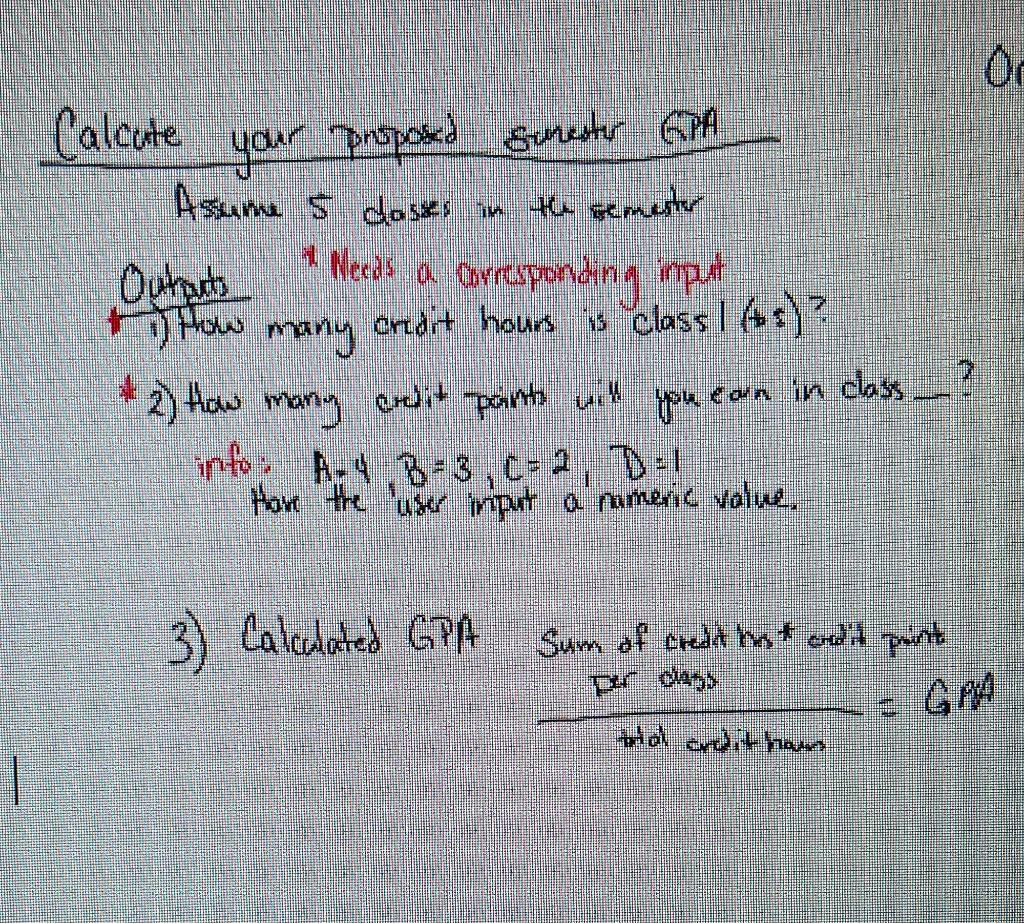 Or
Calcute your proposed semester GPA
Assume 5 classes in the semester
Outputs * Needs a corresponding input
* 1) How many credit hours is class 1 (to 5)?
* 2) How many credit points will you earn in class __?
info: A=4, B=3, C=2, D=1
Have the user input a numeric value.
3) Calculated GPA Sum of credit hrs * credit points
per class
= GPA
total credit hours